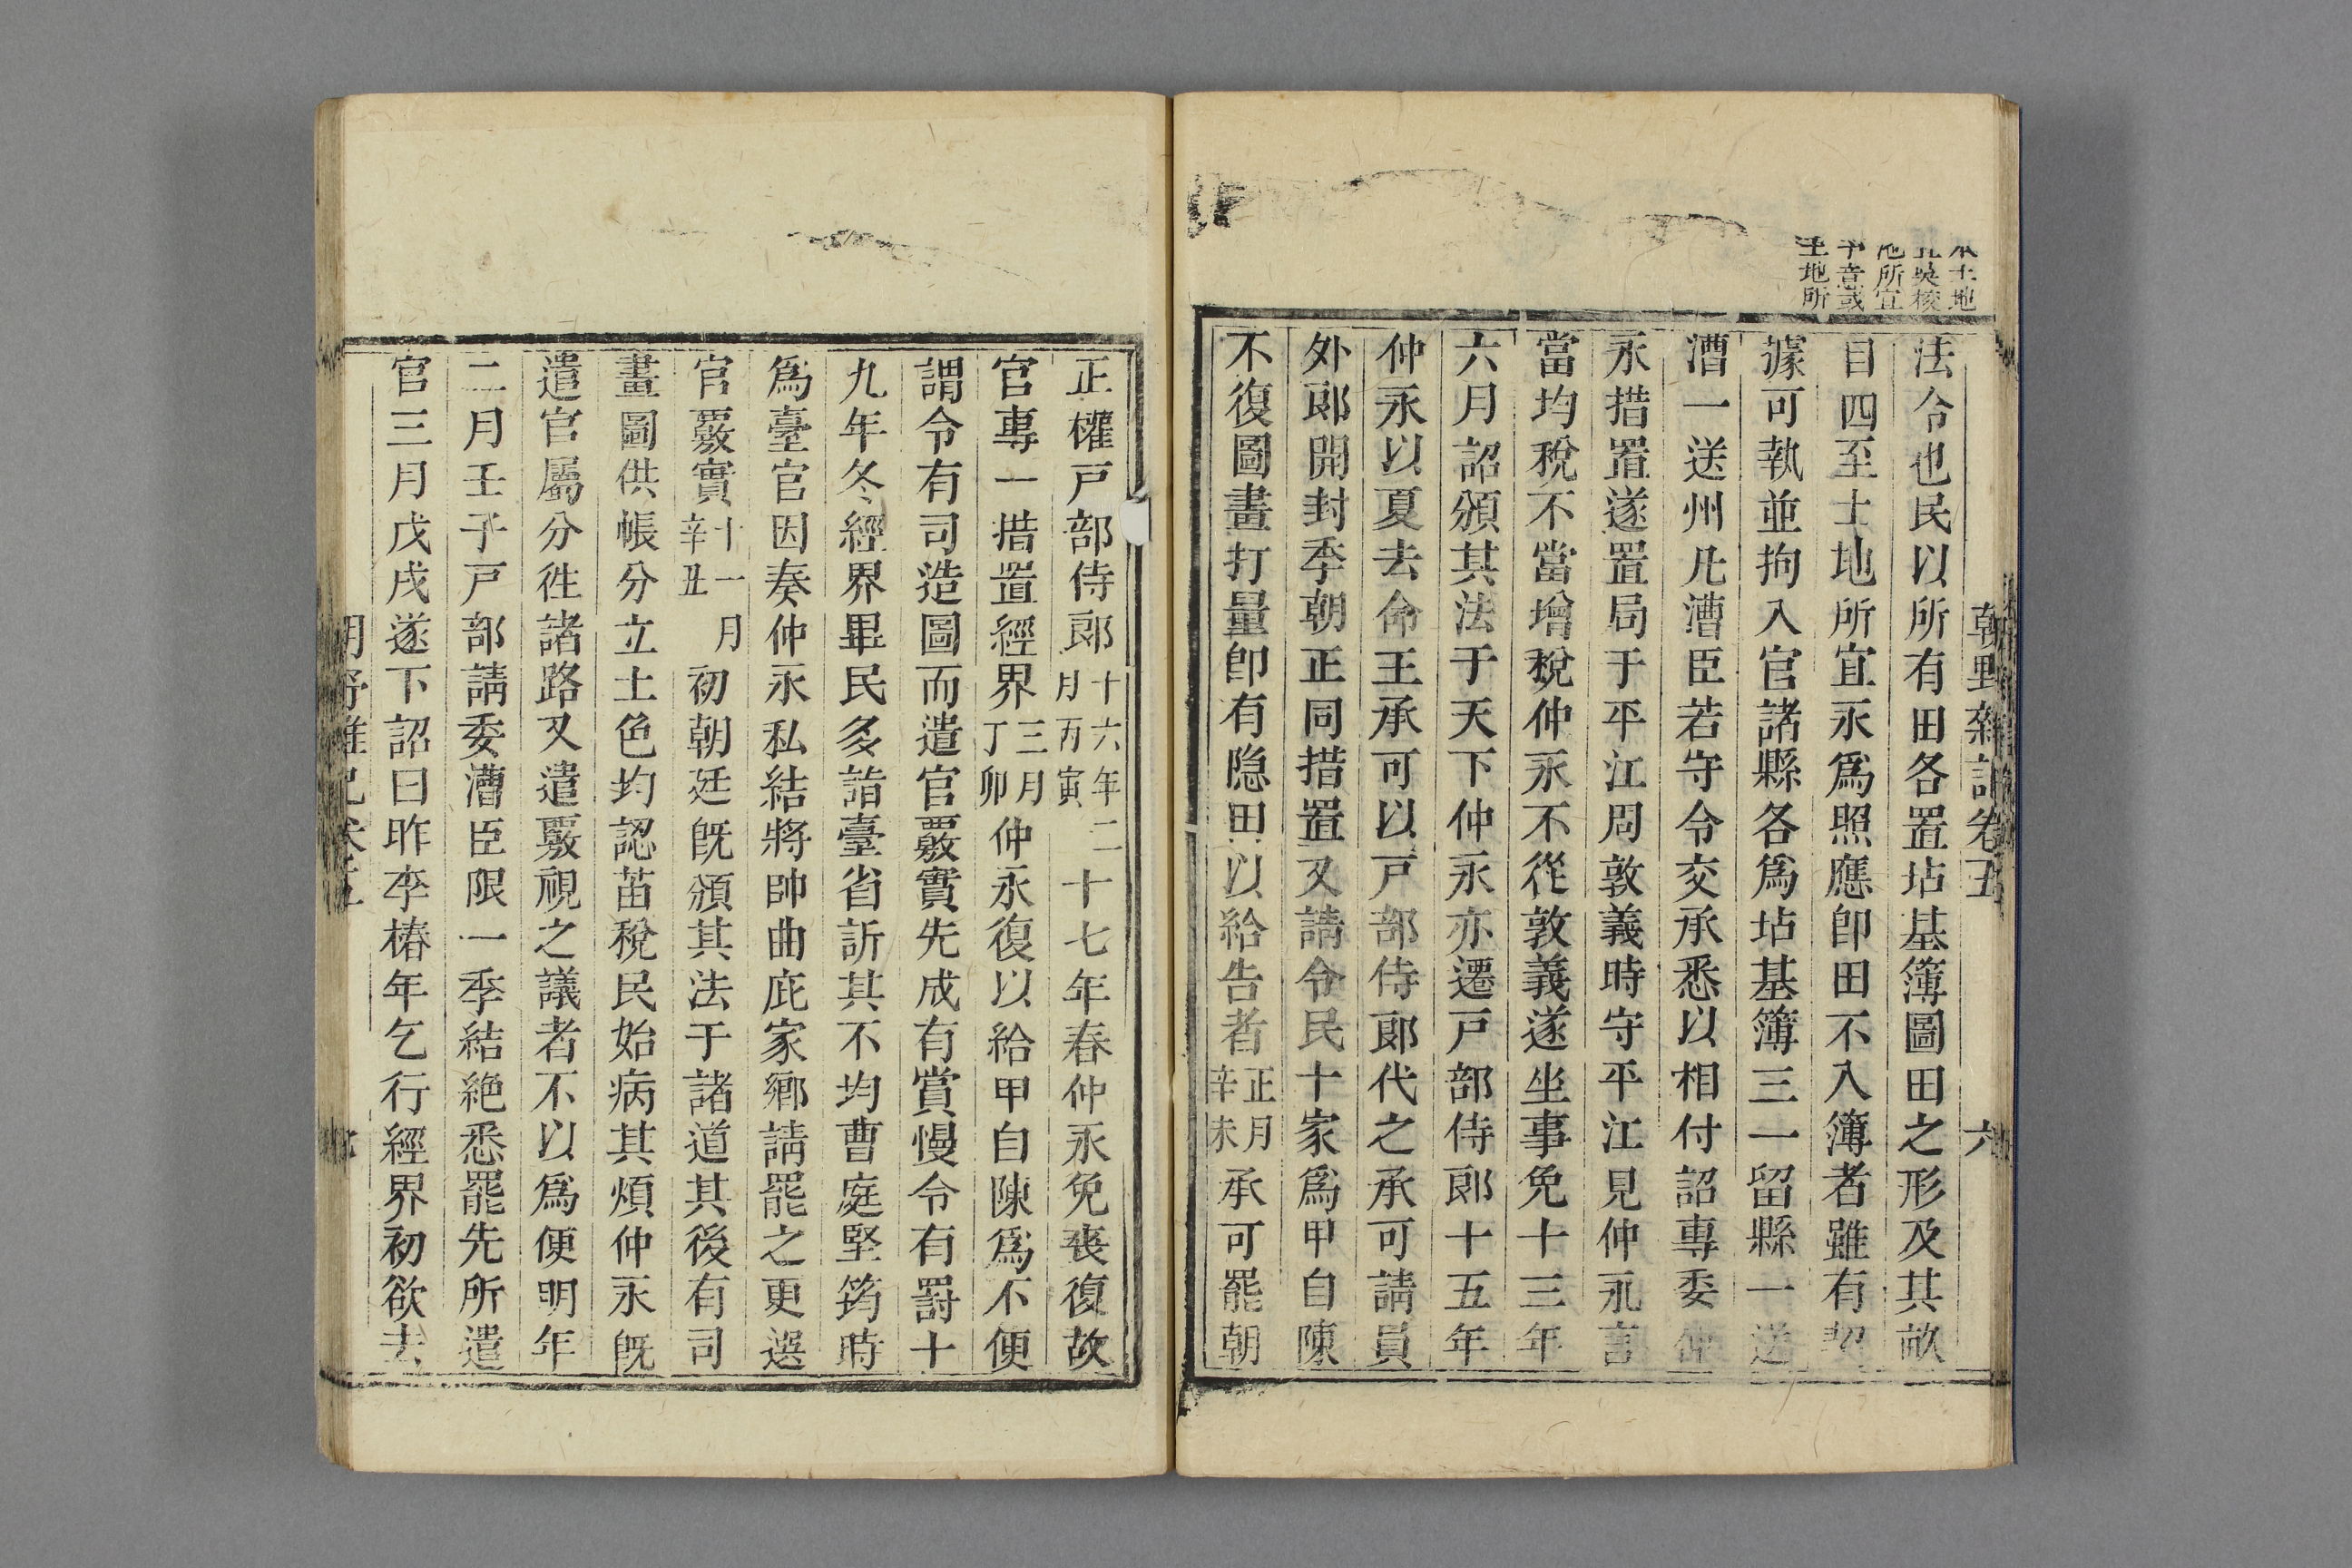 朝野雜記卷五　六
本土地
五吳校
地所宜
平音或
土地所
法令也民以所有田各置坫基簿圖田之形及其畝
目四至土地所宜永爲照應卽田不入簿者雖有契
據可執並拘入官諸縣各爲坫基簿三一留縣一送
漕一送州凡漕臣若守令交承悉以相付詔專委仲
永措置遂置局于平江周敦義時守平江見仲永言
當均稅不當增稅仲永不從敦義遂坐事免十三年
六月詔頒其法于天下仲永亦遷戸部侍郞十五年
仲永以夏去命王承可以戸部侍郞代之承可請員
外郞開封李朝正同措置又請令民十家爲甲自陳
不復圖畫打量卽有隐田以給告者正月辛未承可罷朝
正權戸部侍郞十六年二月丙寅十七年春仲永免喪復故
官專一措置經界三月丁卯仲永復以給甲自陳爲不便
謂令有司造圖而遣官覈實先成有賞慢令有罸十
九年冬經界畢民多詣臺省訢其不均曹庭堅筠時
爲臺官因奏仲永私結將帥曲庇家鄉請罷之更選
官覈實十一月辛丑初朝廷旣頒其法于諸道其後有司
畫圖供帳分立土色均認苗稅民始病其煩仲永旣
遣官屬分徃諸路又遣覈視之議者不以爲便明年
二月壬子戸部請委漕臣限一季結絶悉罷先所遣
官三月戊戌遂下詔曰昨李椿年乞行經界初欲去